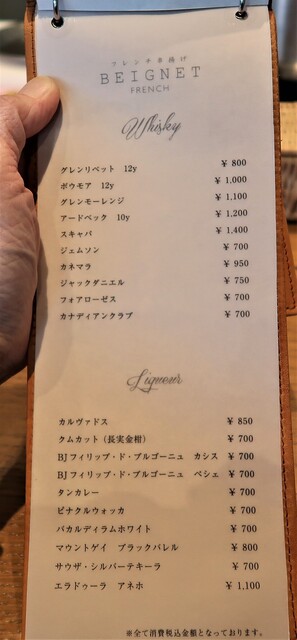 フレンチ串揚げ
BEIGNET
FRENCH
Whisky
グレンリベット 12y ¥ 800
ボウモア 12y ¥ 1,000
グレンモーレンジ ¥ 1,100
アードベック 10y ¥ 1,200
スキャパ ¥ 1,400
ジェムソン ¥ 700
カネマラ ¥ 950
ジャックダニエル ¥ 750
フォアローゼス ¥ 700
カナディアンクラブ ¥ 700
Liqueur
カルヴァドス ¥ 850
クムカット（長実金柑） ¥ 700
BJフィリップ・ド・ブルゴーニュ カシス ¥ 700
BJフィリップ・ド・ブルゴーニュ ペシェ ¥ 700
タンカレー ¥ 700
ピナクルウォッカ ¥ 700
バカルディラムホワイト ¥ 700
マウントゲイ ブラックバレル ¥ 800
サウザ・シルバーテキーラ ¥ 700
エラドゥーラ アネホ ¥ 1,100
※全て消費税込金額となっております。